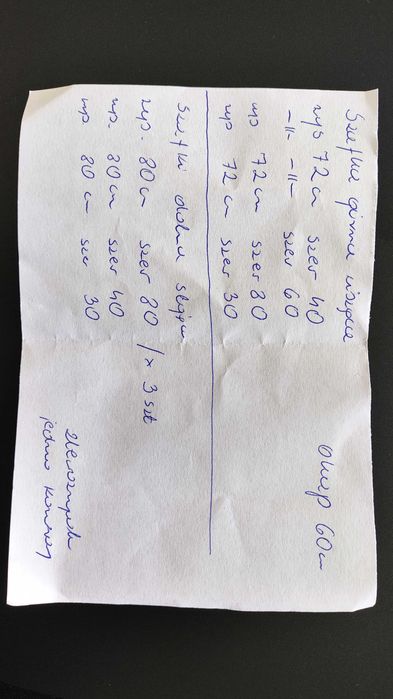 Szafka górna wisząca
wys 72 cm szer 40
-11- -11- szer 60
wys 72 cm szer 80
wys 72 cm szer 30
okap 60 cm
Szafki dolne stojące
wys. 80 cm szer 80 / x 3 szt
wys. 80 cm szer 40
wys 80 cm szer 30